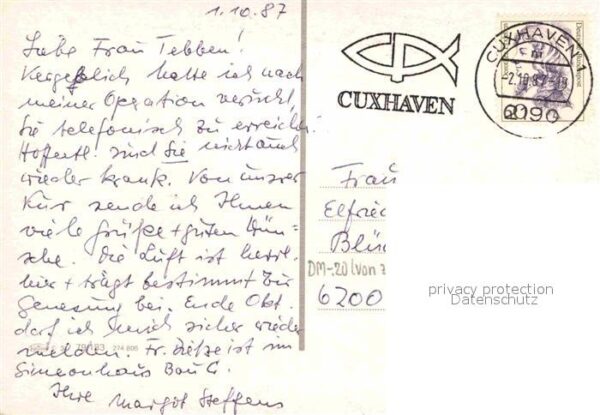 1.10.87
Liebe Frau Tebben!
Vergeblich hatte ich nach
meiner Operation versucht,
Sie telefonisch zu erreichen.
Hoffentl. sind Sie nicht auch
wieder krank. Von unsrer
Kur sende ich Ihnen
viele Grüße + guten Wün=
sche. Die Luft ist herrl.
hier + trägt bestimmt zur
Genesung bei. Ende Okt.
darf ich mich sicher wieder
melden. Fr. ist im
79/133 274 806
Simeonhaus Bau C.
Ihre Margot Steffens
CUXHAVEN
CUXHAVEN 1
-2.10.87-18
2190
Deutsche Bundespost
Frau
Elfried
Blü
DM-.20 (von
6200
privacy protection
Datenschutz